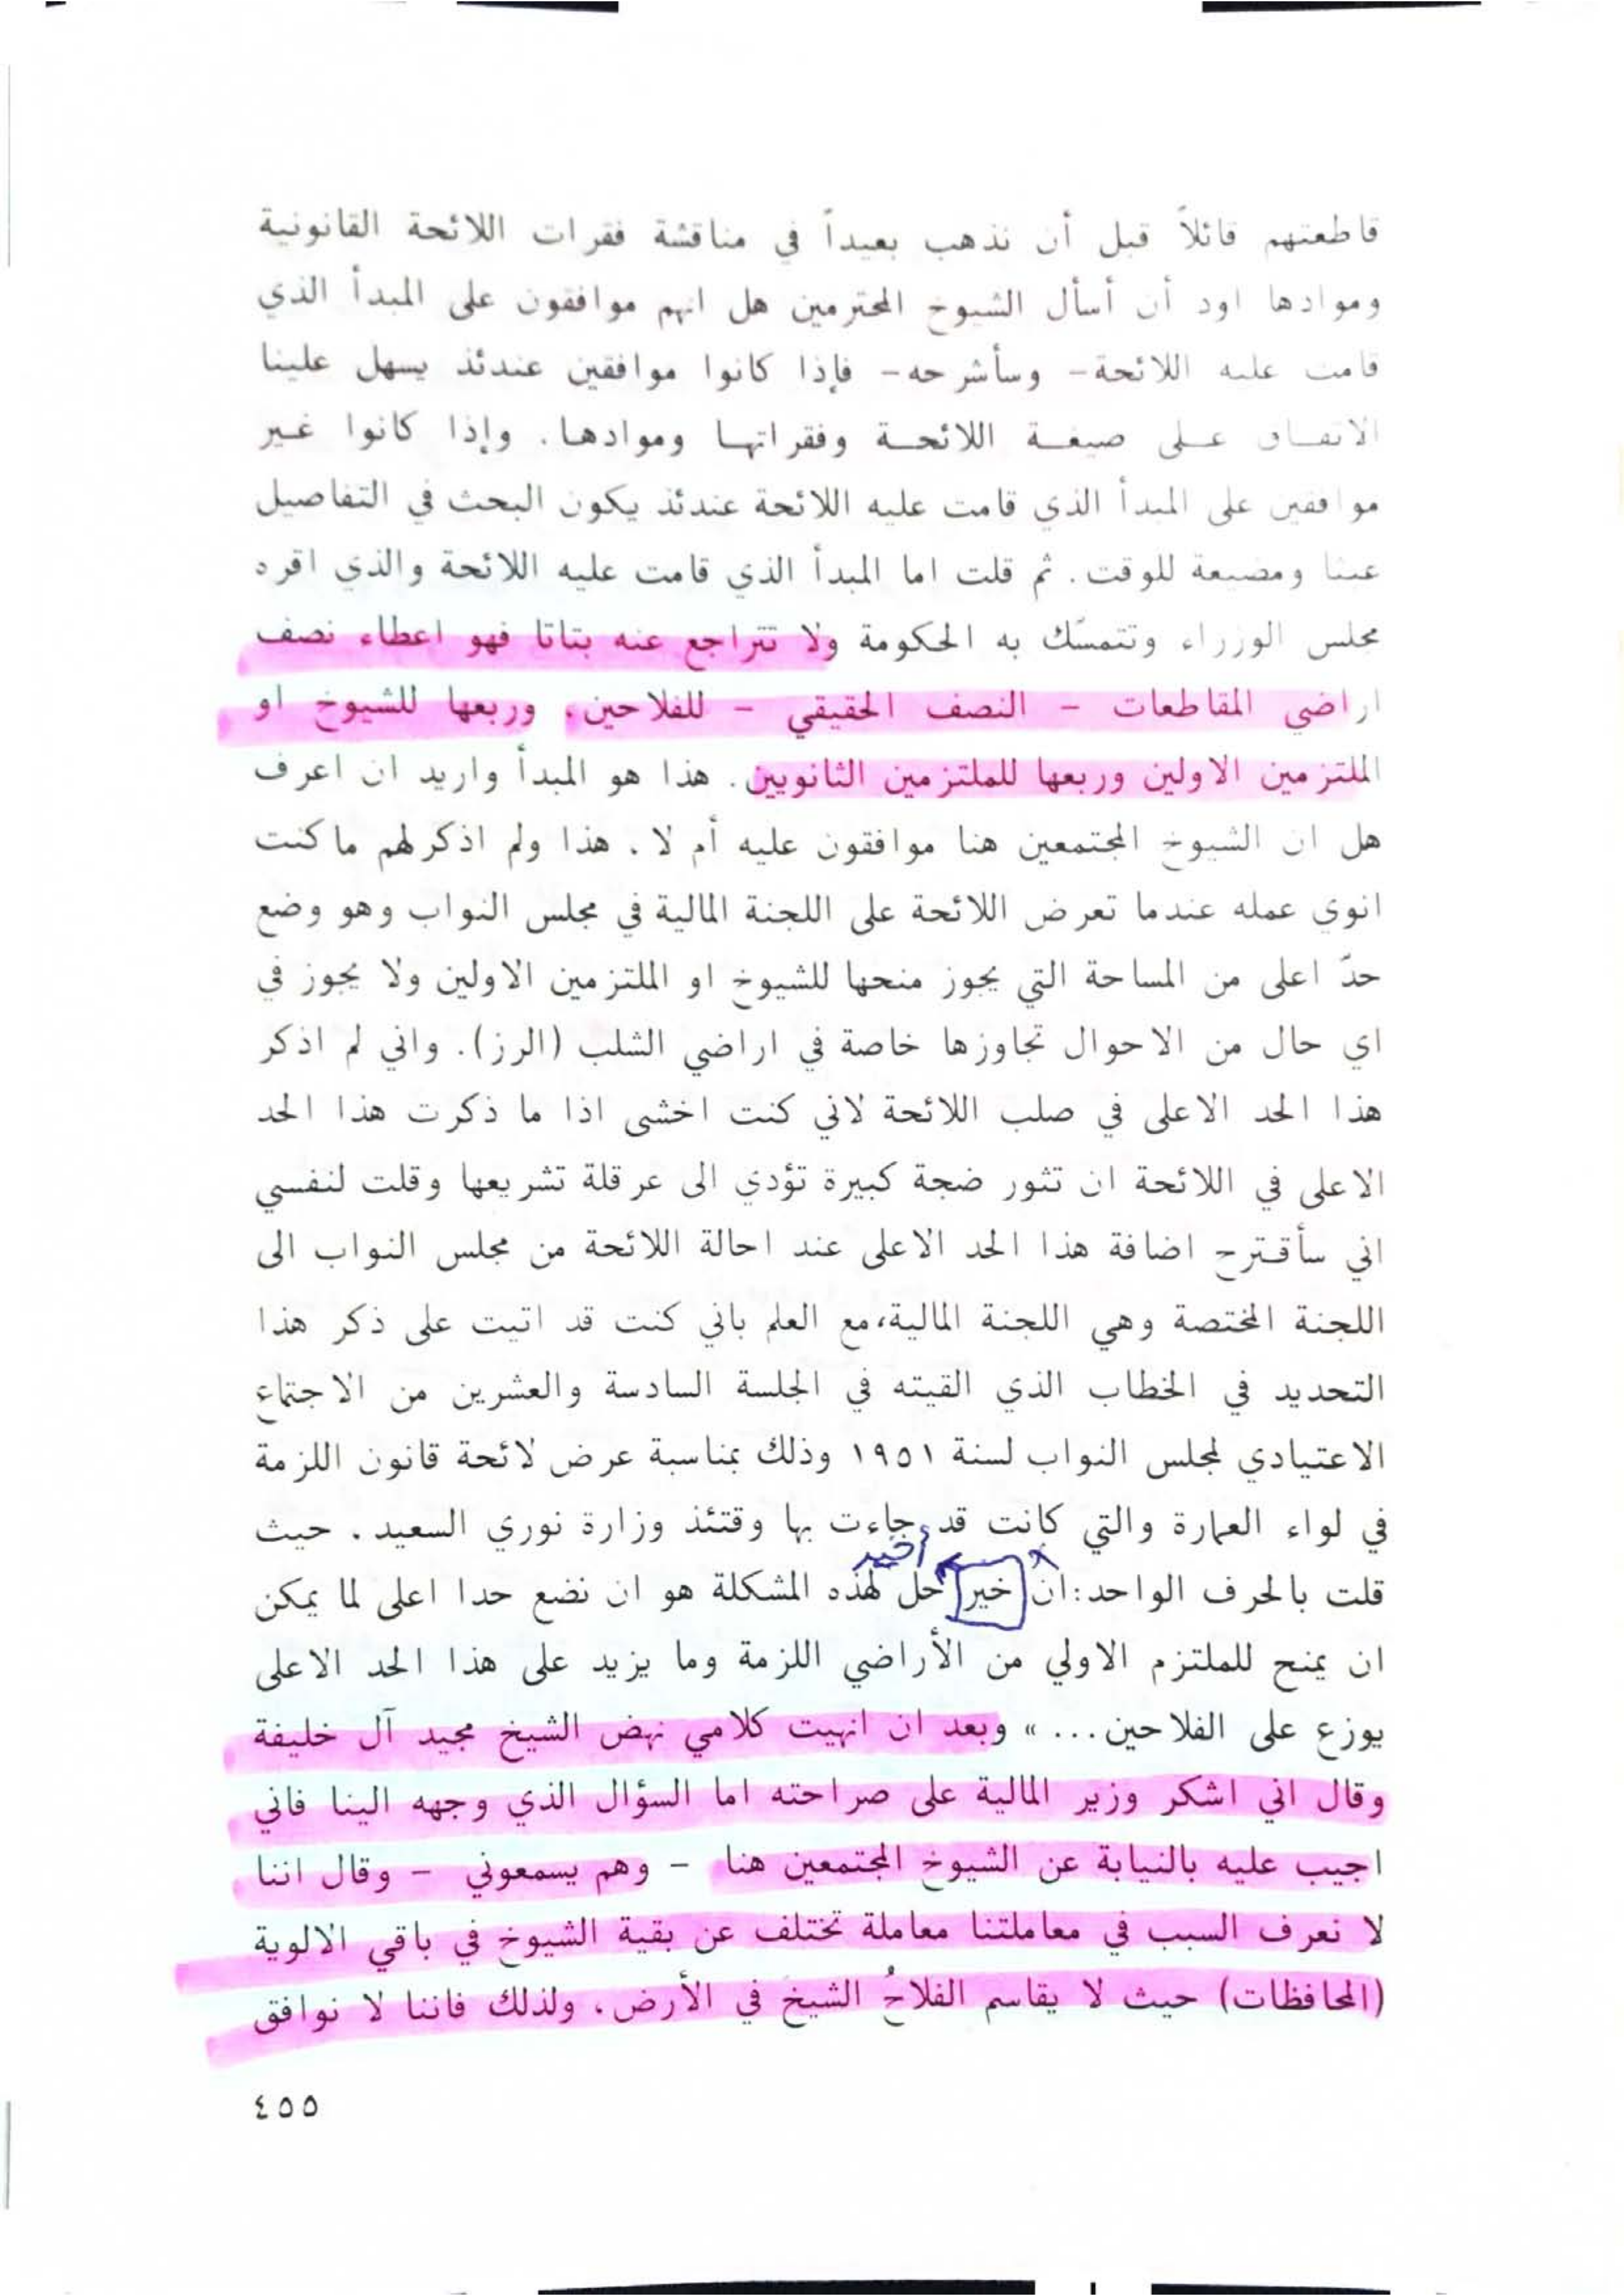 قاطعتهم قائلاً قبل أن نذهب بعيداً في مناقشة فقرات اللائحة القانونية
وموادها اود أن أسأل الشيوخ المحترمين هل انهم موافقون على المبدأ الذي
قامت عليه اللائحة- وسأشرحه- فإذا كانوا موافقين عندئذ يسهل علينا
الاتفاق على صيغة اللائحة وفقراتها وموادها. وإذا كانوا غير
موافقين على المبدأ الذي قامت عليه اللائحة عندئذ يكون البحث في التفاصيل
عبثا ومضيعة للوقت. ثم قلت اما المبدأ الذي قامت عليه اللائحة والذي اقره
مجلس الوزراء وتتمسّك به الحكومة ولا تتراجع عنه بتاتا فهو اعطاء نصف
اراضي المقاطعات - النصف الحقيقي - للفلاحين، وربعها للشيوخ او
الملتزمين الاولين وربعها للملتزمين الثانويين. هذا هو المبدأ واريد ان اعرف
هل ان الشيوخ المجتمعين هنا موافقون عليه أم لا. هذا ولم اذكر لهم ما كنت
انوي عمله عندما تعرض اللائحة على اللجنة المالية في مجلس النواب وهو وضع
حدّ اعلى من المساحة التي يجوز منحها للشيوخ او الملتزمين الاولين ولا يجوز في
اي حال من الاحوال تجاوزها خاصة في اراضي الشلب (الرز). واني لم اذكر
هذا الحد الاعلى في صلب اللائحة لاني كنت اخشى اذا ما ذكرت هذا الحد
الاعلى في اللائحة ان تثور ضجة كبيرة تؤدي الى عرقلة تشريعها وقلت لنفسي
اني سأقترح اضافة هذا الحد الاعلى عند احالة اللائحة من مجلس النواب الى
اللجنة المختصة وهي اللجنة المالية، مع العلم باني كنت قد اتيت على ذكر هذا
التحديد في الخطاب الذي القيته في الجلسة السادسة والعشرين من الاجتماع
الاعتيادي لمجلس النواب لسنة ١٩٥١ وذلك بمناسبة عرض لائحة قانون اللزمة
في لواء العمارة والتي كانت قد جاءت بها وقتئذ وزارة نوري السعيد. حيث
قلت بالحرف الواحد: ان خير حل لهذه المشكلة هو ان نضع حدا اعلى لما يمكن
ان يمنح للملتزم الاولي من الأراضي اللزمة وما يزيد على هذا الحد الاعلى
يوزع على الفلاحين... » وبعد ان انهيت كلامي نهض الشيخ مجيد آل خليفة
وقال اني اشكر وزير المالية على صراحته اما السؤال الذي وجهه الينا فاني
اجيب عليه بالنيابة عن الشيوخ المجتمعين هنا - وهم يسمعوني - وقال اننا
لا نعرف السبب في معاملتنا معاملة تختلف عن بقية الشيوخ في باقي الالوية
(المحافظات) حيث لا يقاسم الفلاحُ الشيخَ في الأرض، ولذلك فاننا لا نوافق
٤٥٥